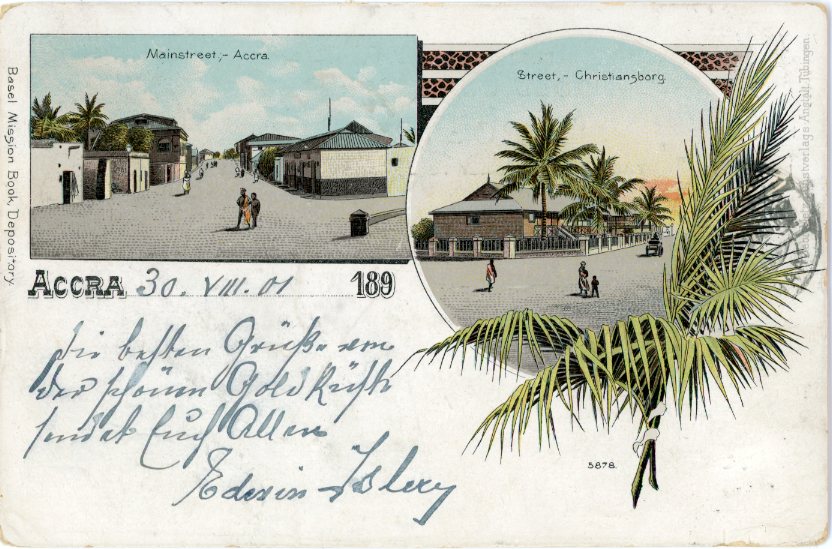 Mainstreet,- Accra.
Street,- Christiansborg.
Basel Mission Book Depository.
ACCRA 30. VIII. 01 189
Die besten Grüße von
der schönen Goldküste
sendet Euch Allen
Edwin
5878.